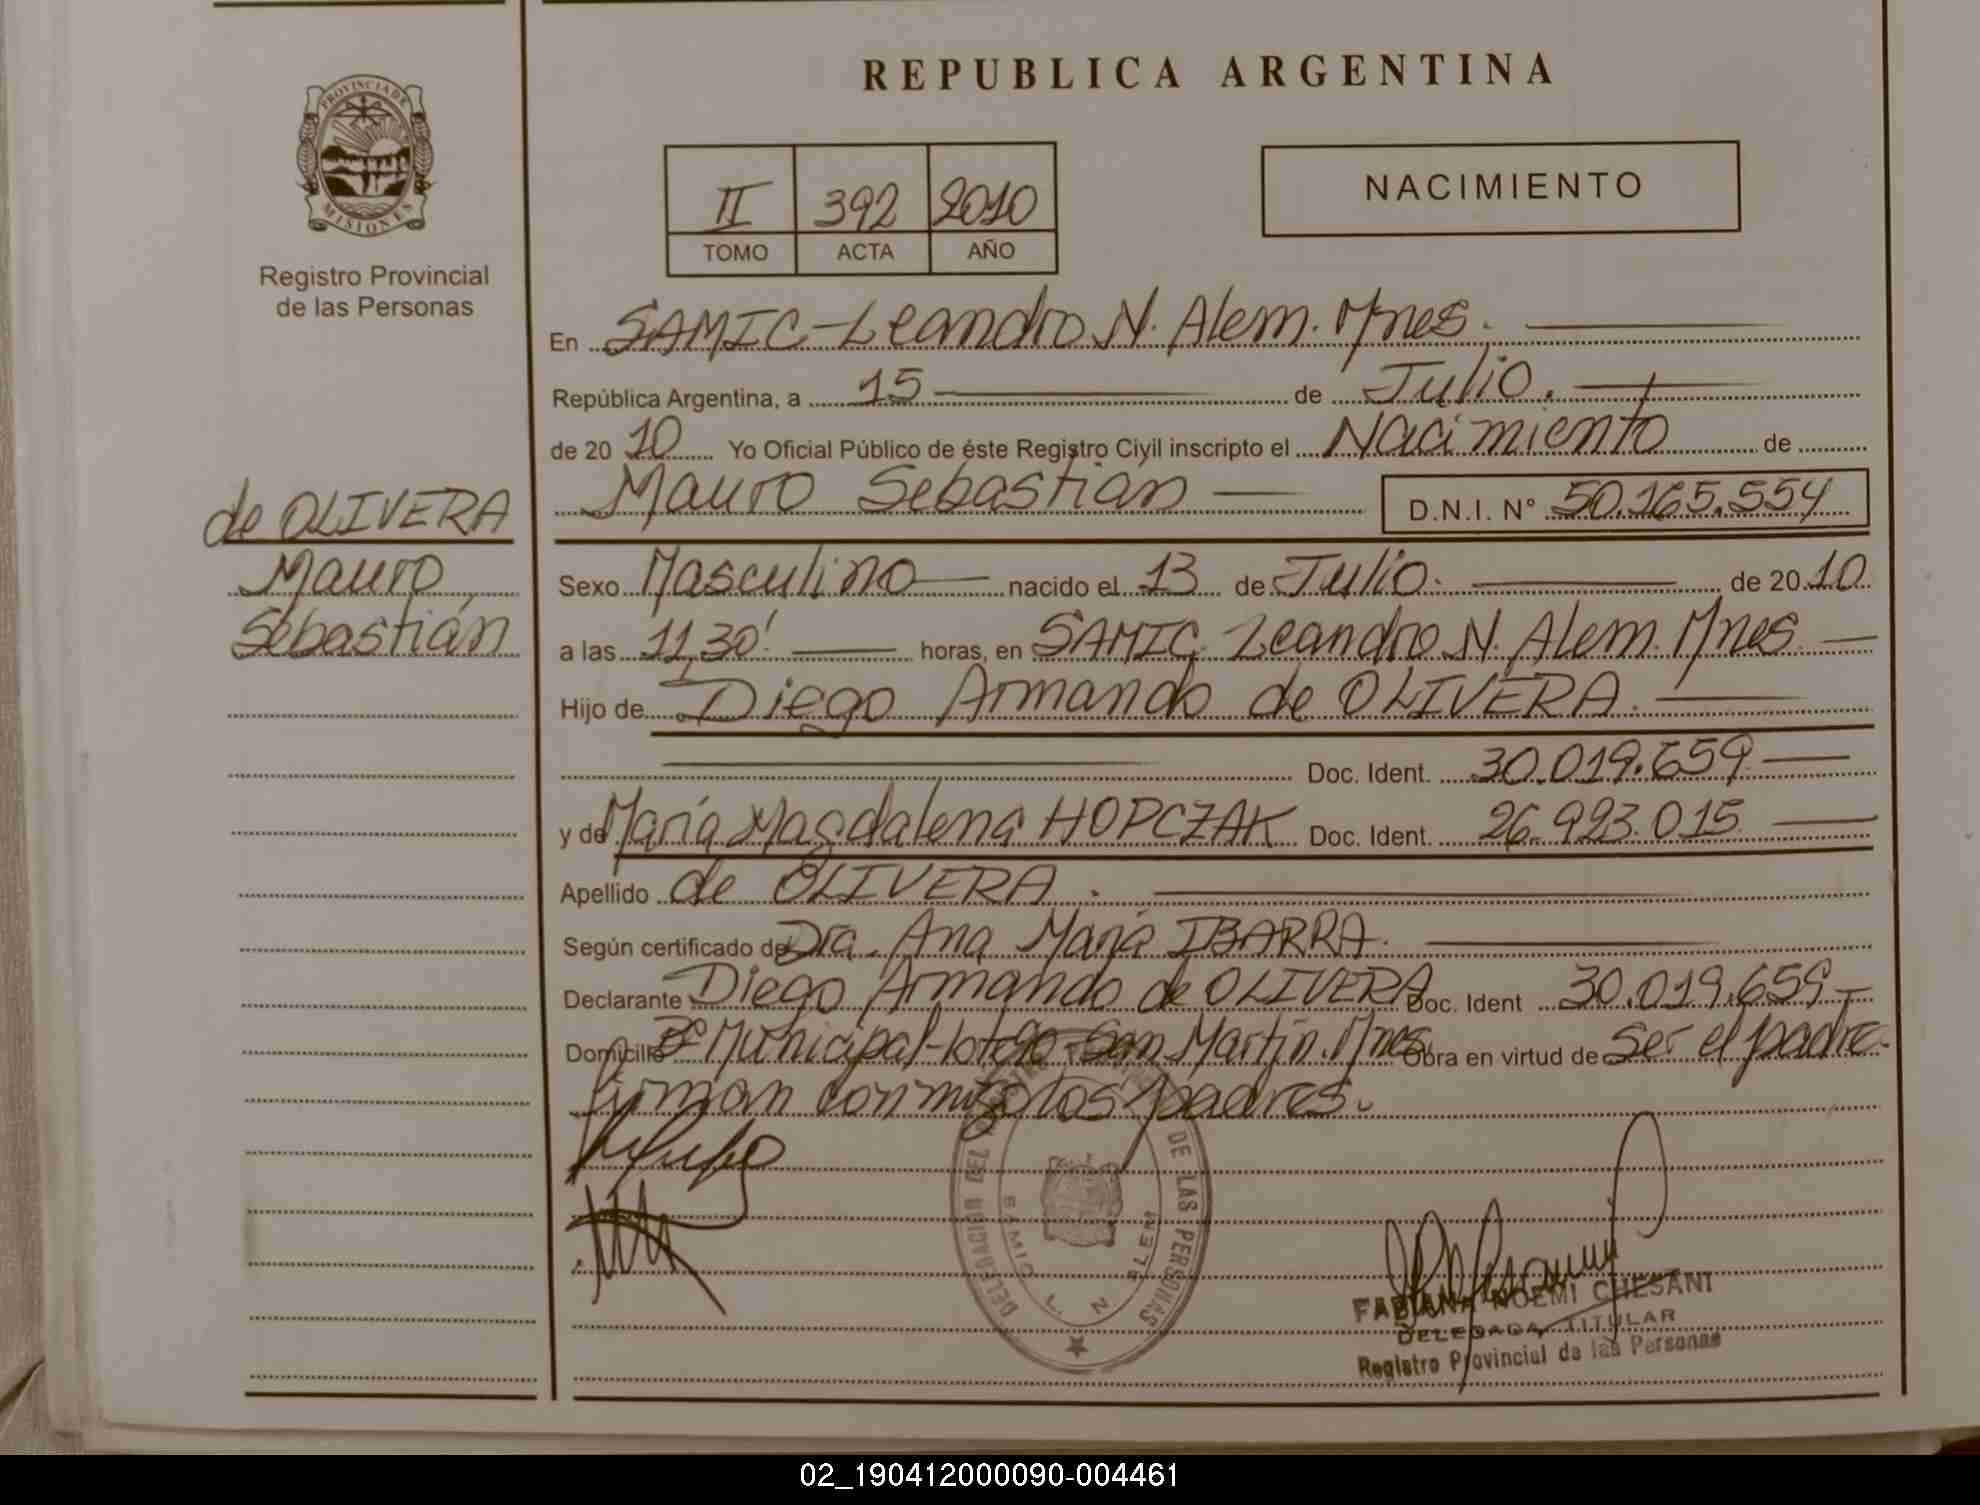 REPUBLICA ARGENTINA
PROVINCIA DE
MISIONES
Registro Provincial
de las Personas
II 392 2010
TOMO ACTA AÑO
NACIMIENTO
En SAMIC-Leandro N. Alem. Mnes.
República Argentina, a 15 de Julio.
de 20 10 Yo Oficial Público de éste Registro Civil inscripto el Nacimiento de
Mauro Sebastián D.N.I. Nº 50.165.554
de OLIVERA
Mauro
Sebastián
Sexo Masculino nacido el 13 de Julio. de 20 10
a las 11,30' horas, en SAMIC. Leandro N. Alem. Mnes.
Hijo de Diego Armando de OLIVERA.
Doc. Ident. 30.019.659
y de María Magdalena HOPCZAK Doc. Ident. 26.923.015
Apellido de OLIVERA.
Según certificado de Dra. Ana María IBARRA.
Declarante Diego Armando de OLIVERA Doc. Ident 30.019.659
Domicilio Bº Municipal-loteo-San Martín. Mnes. Obra en virtud de ser el padre.
firman conmigo los padres.
DELEGACION DEL DE LAS PERSONAS
SAMIC L. N. ALEM
FABIANA NOEMI CHESANI
DELEGADA TITULAR
Registro Provincial de las Personas
02_190412000090-004461